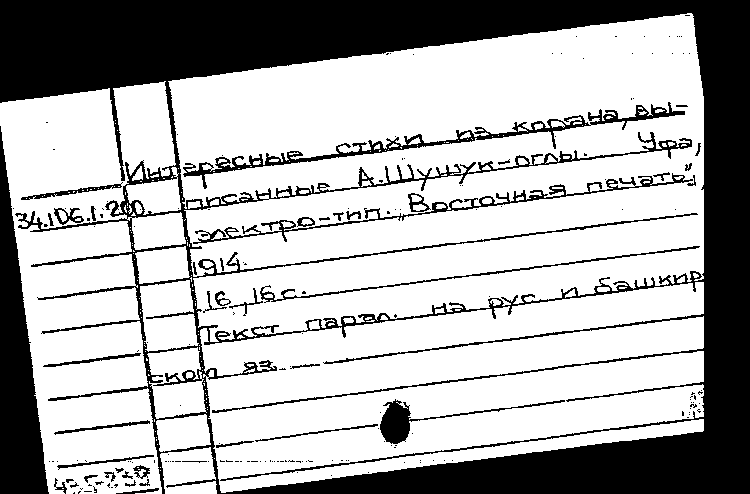 Интересные стихи из корана, вы-
34.106.1.200. писанные А.Шушук-оглы. Уфа,
электро-тип. „Восточная печать",
1914.
16, 16 с.
Текст парал. на рус и башкир
ском яз